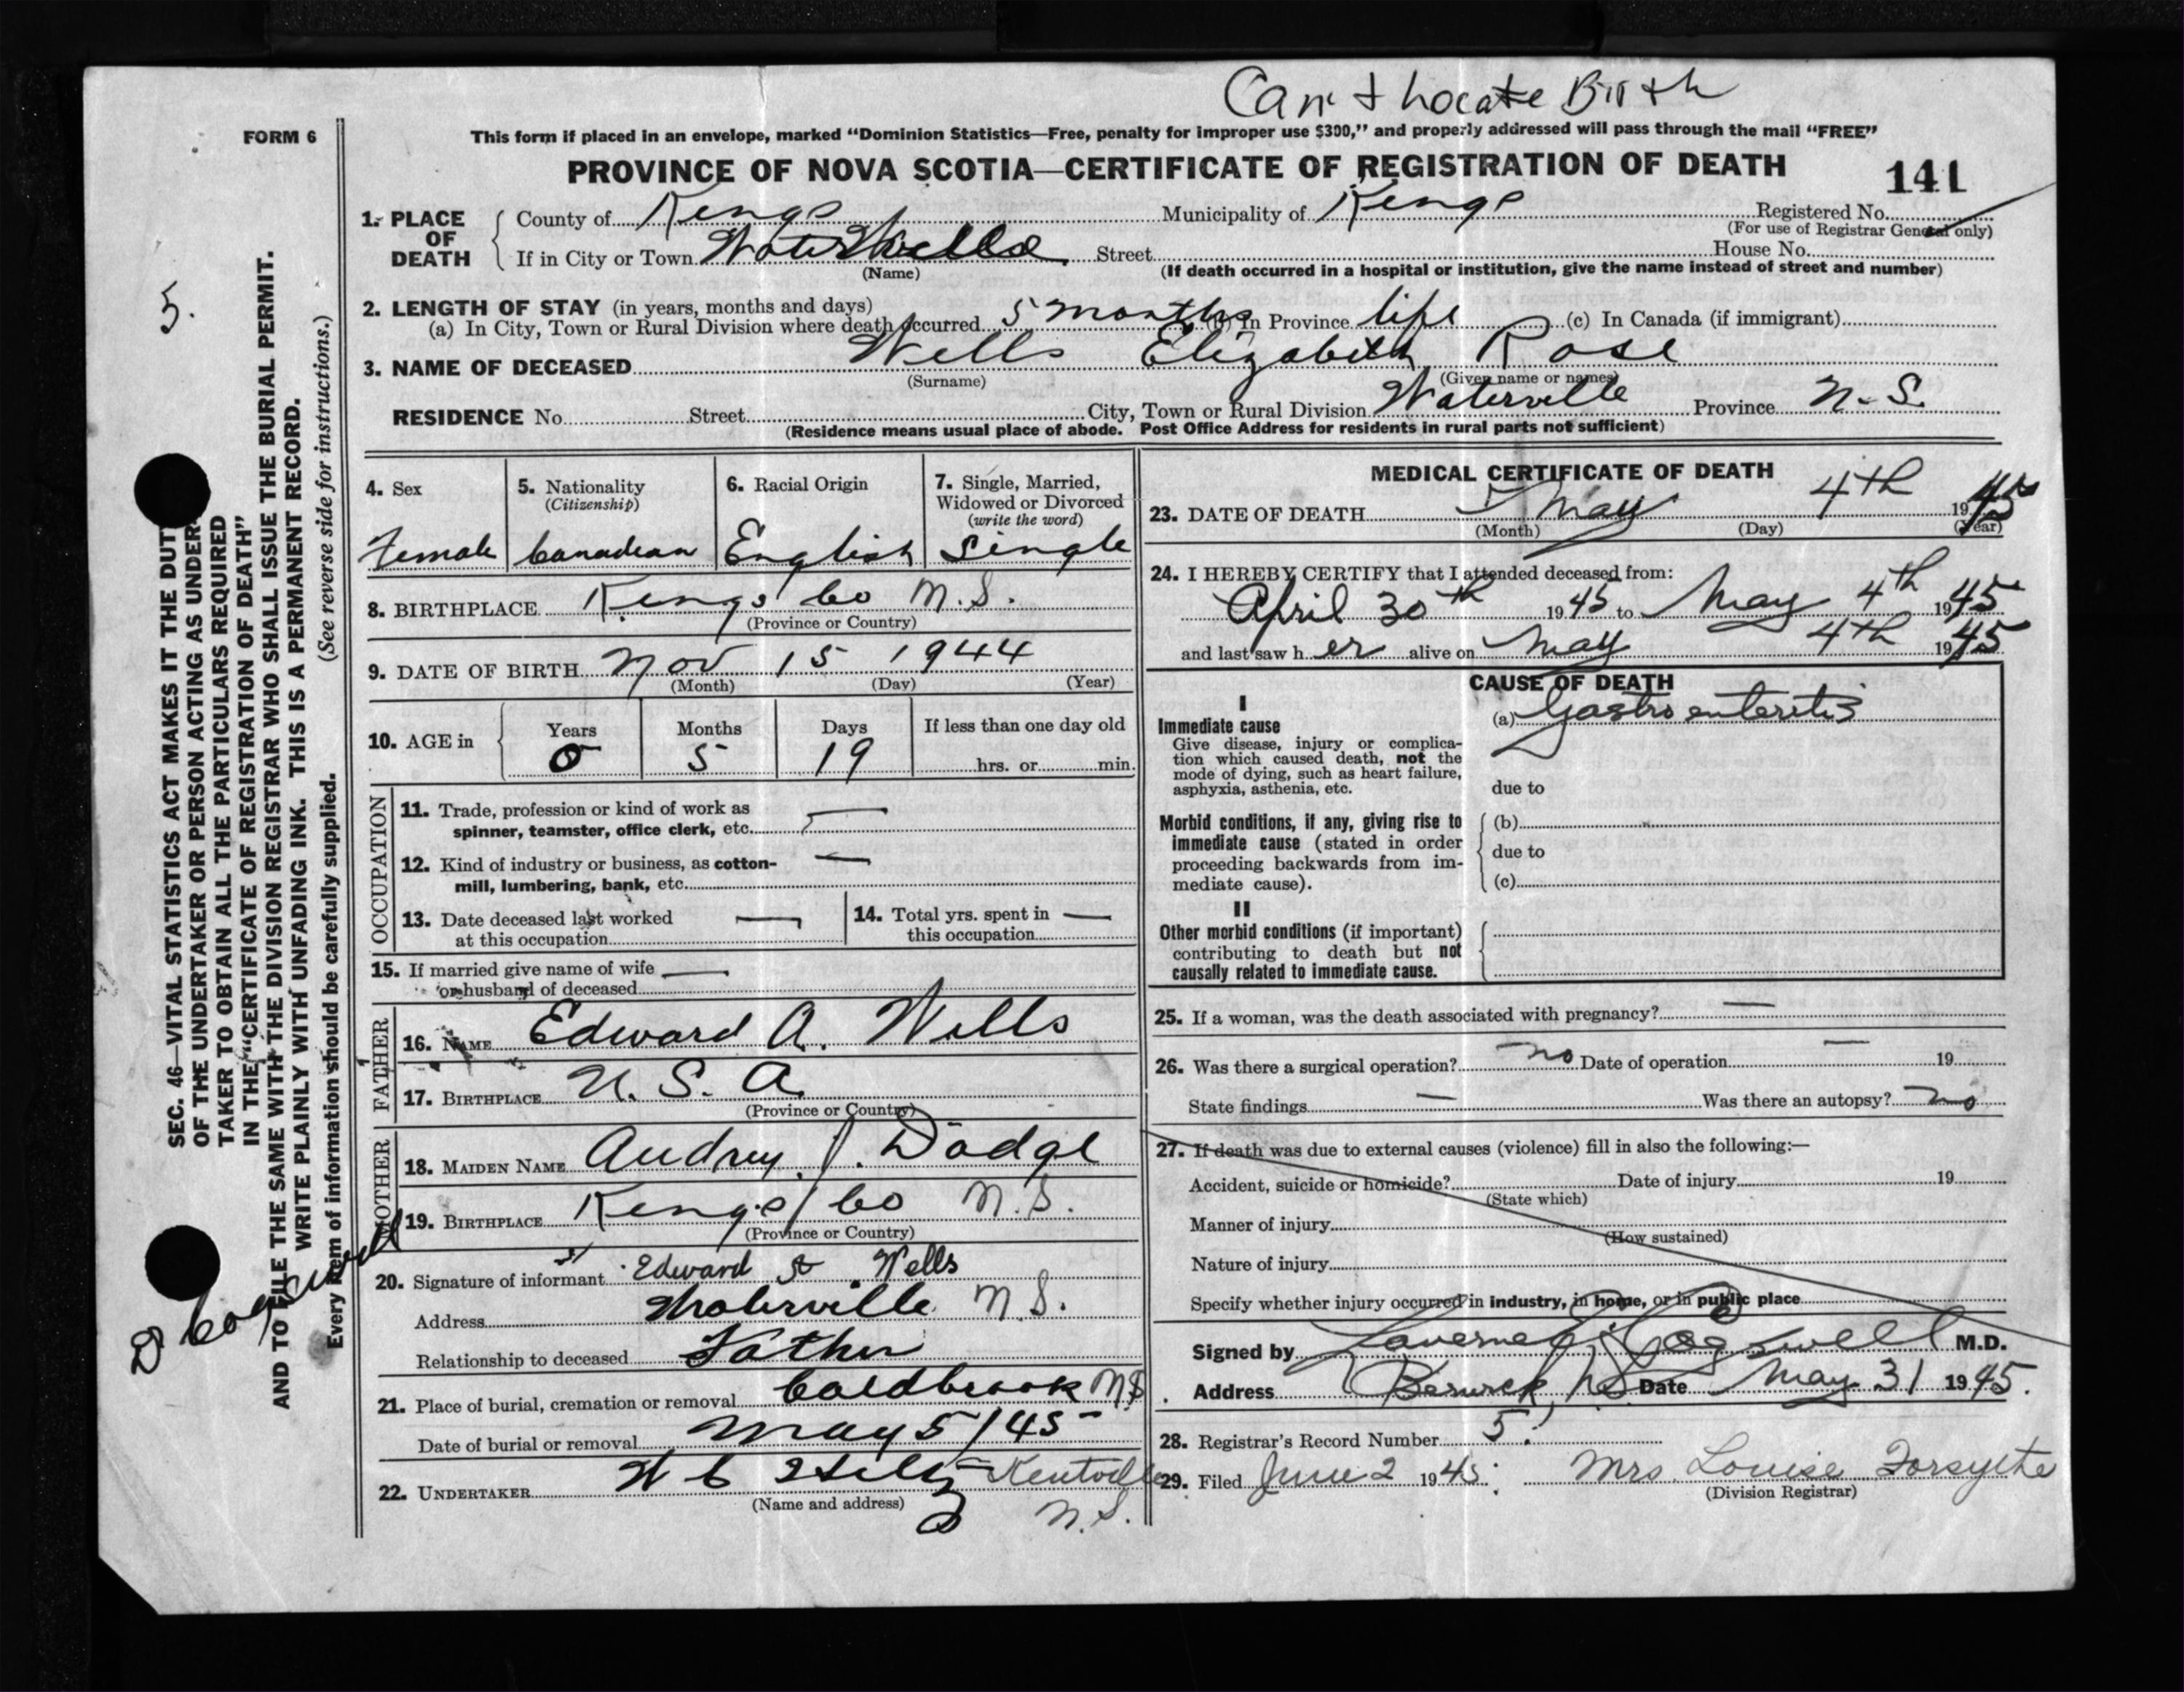 Can't Locate Birth
FORM 6
This form if placed in an envelope, marked “Dominion Statistics—Free, penalty for improper use $300,” and properly addressed will pass through the mail “FREE”
PROVINCE OF NOVA SCOTIA—CERTIFICATE OF REGISTRATION OF DEATH
141
1. PLACE OF DEATH
County of Kings Municipality of Kings Registered No.
(For use of Registrar General only)
If in City or Town Waterville Street House No.
(Name) (If death occurred in a hospital or institution, give the name instead of street and number)
2. LENGTH OF STAY (in years, months and days)
(a) In City, Town or Rural Division where death occurred 5 months (b) In Province life (c) In Canada (if immigrant)
3. NAME OF DECEASED Wells Elizabeth Rose
(Surname) (Given name or names)
RESIDENCE No. Street City, Town or Rural Division Waterville Province N.S.
(Residence means usual place of abode. Post Office Address for residents in rural parts not sufficient)
4. Sex
Female
5. Nationality
(Citizenship)
Canadian
6. Racial Origin
English
7. Single, Married,
Widowed or Divorced
(write the word)
Single
8. BIRTHPLACE Kings Co N.S.
(Province or Country)
9. DATE OF BIRTH Nov 15 1944
(Month) (Day) (Year)
10. AGE in
Years Months Days If less than one day old
0 5 19 hrs. or min.
OCCUPATION
11. Trade, profession or kind of work as —
spinner, teamster, office clerk, etc.
12. Kind of industry or business, as cotton- —
mill, lumbering, bank, etc.
13. Date deceased last worked —
at this occupation
14. Total yrs. spent in —
this occupation
15. If married give name of wife —
or husband of deceased
FATHER
16. NAME Edward A. Wells
17. BIRTHPLACE U.S.A.
(Province or Country)
MOTHER
18. MAIDEN NAME Audrey J. Dodge
19. BIRTHPLACE Kings Co N.S.
(Province or Country)
20. Signature of informant Edward A Wells
Address Waterville N.S.
Relationship to deceased Father
21. Place of burial, cremation or removal Coldbrook NS
Date of burial or removal May 5/45
22. UNDERTAKER W C Kentville
(Name and address) N.S.
MEDICAL CERTIFICATE OF DEATH
23. DATE OF DEATH May 4th 1945
(Month) (Day) (Year)
24. I HEREBY CERTIFY that I attended deceased from:
April 30th 1945 to May 4th 1945
and last saw her alive on May 4th 1945
CAUSE OF DEATH
I
Immediate cause
Give disease, injury or complica-
tion which caused death, not the
mode of dying, such as heart failure,
asphyxia, asthenia, etc.
(a) Gastro enteritis
due to
Morbid conditions, if any, giving rise to
immediate cause (stated in order
proceeding backwards from im-
mediate cause).
(b)
due to
(c)
II
Other morbid conditions (if important)
contributing to death but not
causally related to immediate cause.
25. If a woman, was the death associated with pregnancy? —
26. Was there a surgical operation? no Date of operation — 19
State findings — Was there an autopsy? no
27. If death was due to external causes (violence) fill in also the following:—
Accident, suicide or homicide? Date of injury 19
(State which)
Manner of injury
(How sustained)
Nature of injury
Specify whether injury occurred in industry, in home, or in public place
Signed by Laverne C. Cogswell M.D.
Address Berwick, NS Date May 31 1945.
28. Registrar's Record Number 5.
29. Filed June 2 1945. Mrs. Louise Forsythe
(Division Registrar)
5.
SEC. 46—VITAL STATISTICS ACT MAKES IT THE DUTY
OF THE UNDERTAKER OR PERSON ACTING AS UNDER-
TAKER TO OBTAIN ALL THE PARTICULARS REQUIRED
IN THE “CERTIFICATE OF REGISTRATION OF DEATH”
AND TO FILE THE SAME WITH THE DIVISION REGISTRAR WHO SHALL ISSUE THE BURIAL PERMIT.
WRITE PLAINLY WITH UNFADING INK. THIS IS A PERMANENT RECORD.
Every item of information should be carefully supplied. (See reverse side for instructions.)
D Cogswell